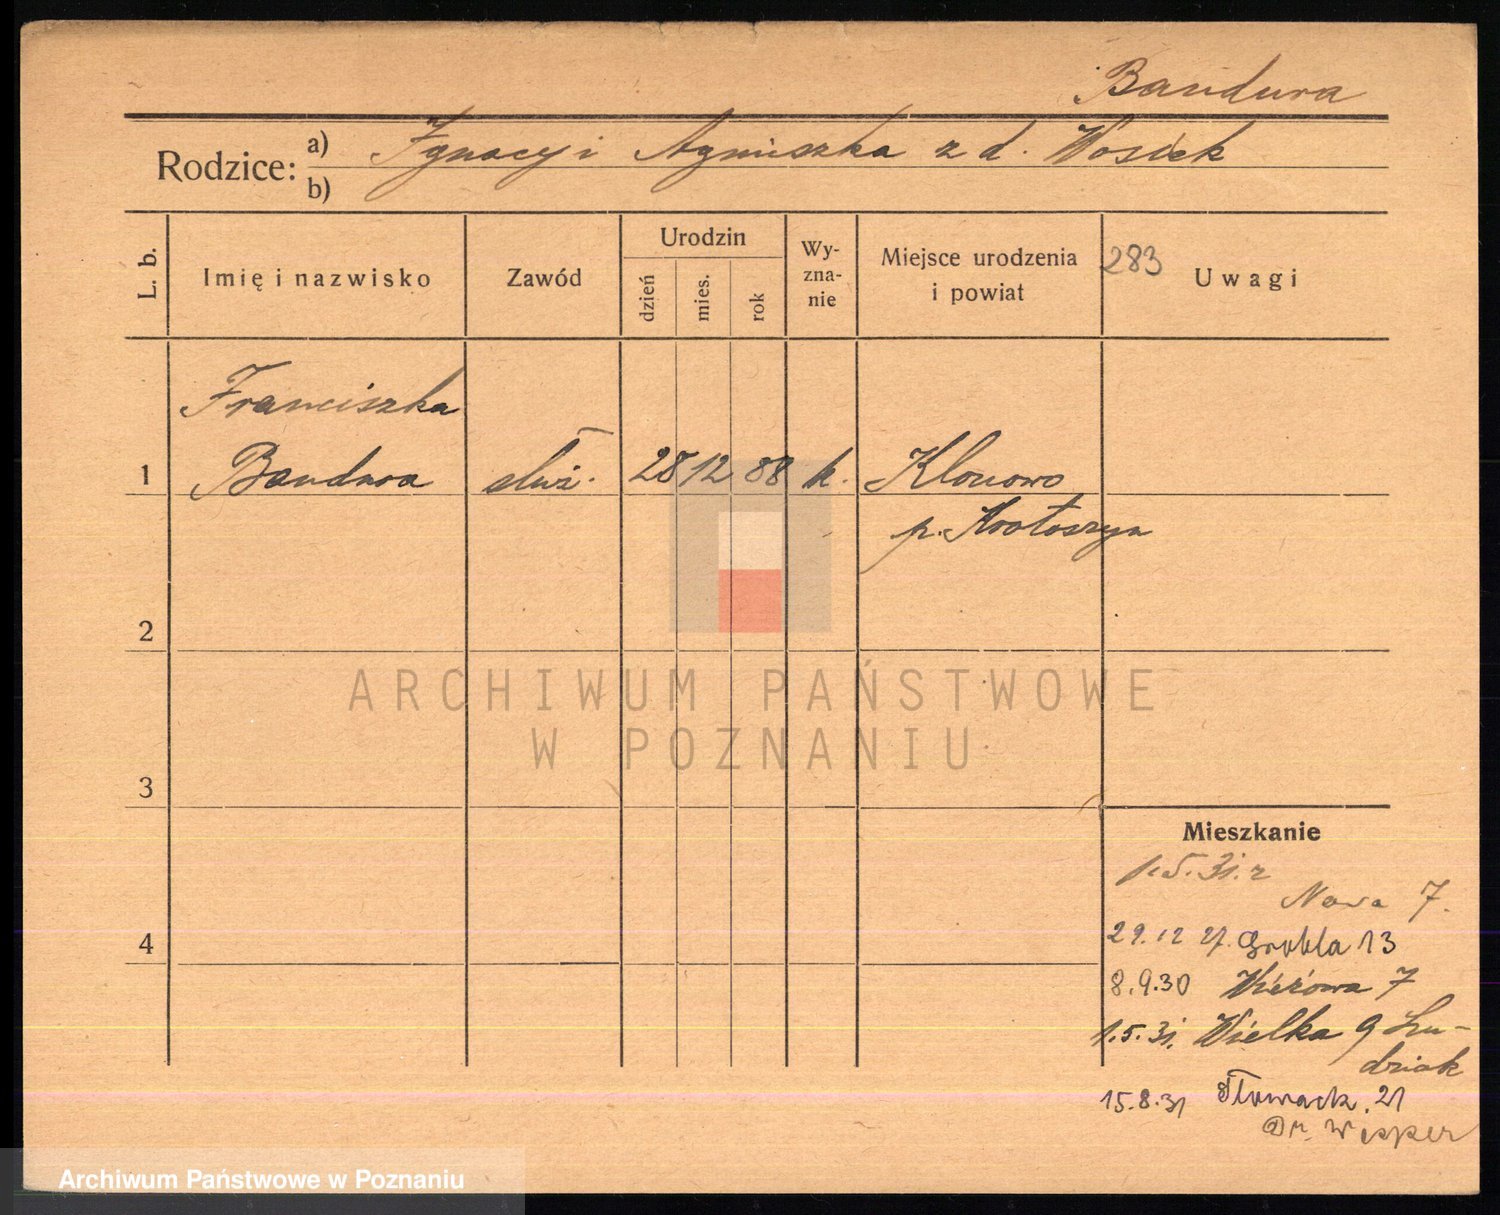 Bandura
Rodzice: a) Ignacy i Agnieszka z d. Wosiek
b)
L. b. Imię i nazwisko Zawód Urodzin dzień mies. rok Wy-zna-nie Miejsce urodzenia i powiat 283 Uwagi
Franciszka
1 Bandura służ. 28 12 88 k. Klonowo
p. Krotoszyn
2
ARCHIWUM PAŃSTWOWE
W POZNANIU
3
Mieszkanie
Nowa 7.
4 29.12 27. Grobla 13
8.9.30 7
1.5.31. Wielka 9 Lu-
dziak
15.8.31 Słowack. 21
Dr.
Archiwum Państwowe w Poznaniu